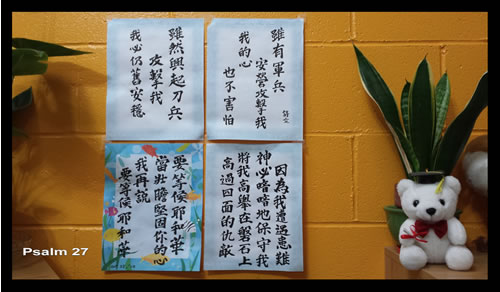 雖有軍兵
安營攻擊我
我的心
也不害怕
雖然興起刀兵
攻擊我
我必仍舊安穩
因為我遭遇患難
神必暗暗地保守我
將我高舉在磐石上
高過四面的仇敵
要等候耶和華
當壯膽堅固你的心
我再說
要等候耶和華
Psalm 27